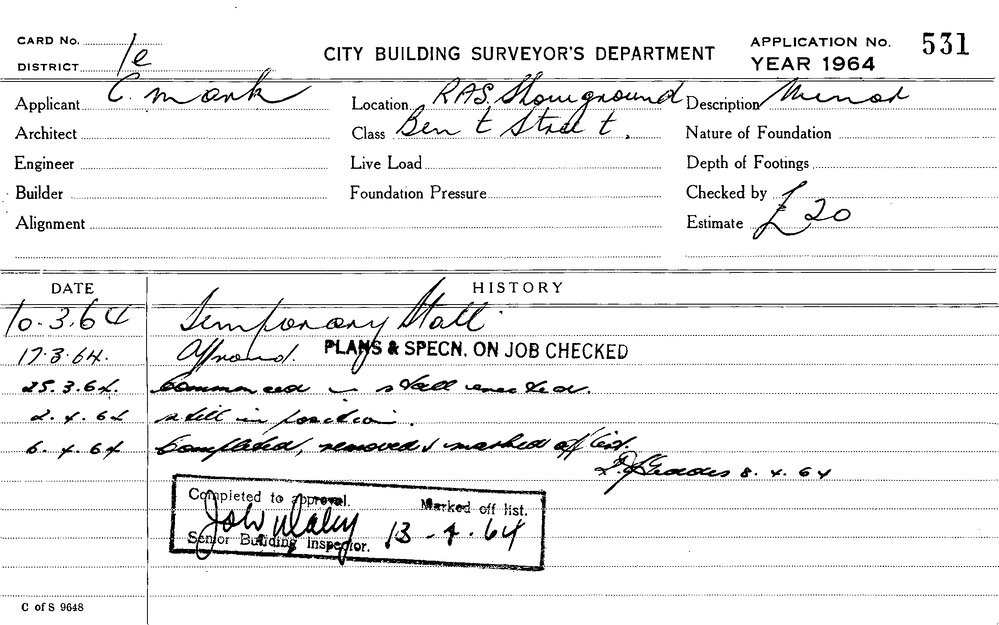 CARD No.
DISTRICT 1e
CITY BUILDING SURVEYOR'S DEPARTMENT
APPLICATION No. 531
YEAR 1964
Applicant C. Mark
Location RAS. Showground
Description Minor
Architect
Class Bent Street.
Nature of Foundation
Engineer
Live Load
Depth of Footings
Builder
Foundation Pressure
Checked by
Alignment
Estimate £20
DATE HISTORY
10.3.64 Temporary Stall
17.3.64. Approved. PLANS & SPECN. ON JOB CHECKED
25.3.64. Commenced – stall erected.
2.4.64 still in position.
6.4.64 Completed, removed & marked off list.
8.4.64
Completed to approval. Marked off list.
John Daley 13-4-64
Senior Building Inspector.
C of S 9648